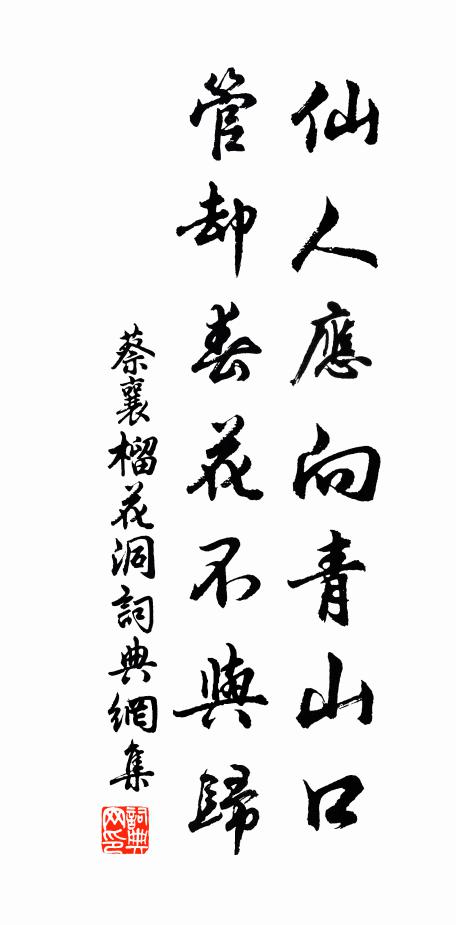 仙人應向青山口
管却春花不與歸
蔡襄榴花洞詞典網集
詞典網印